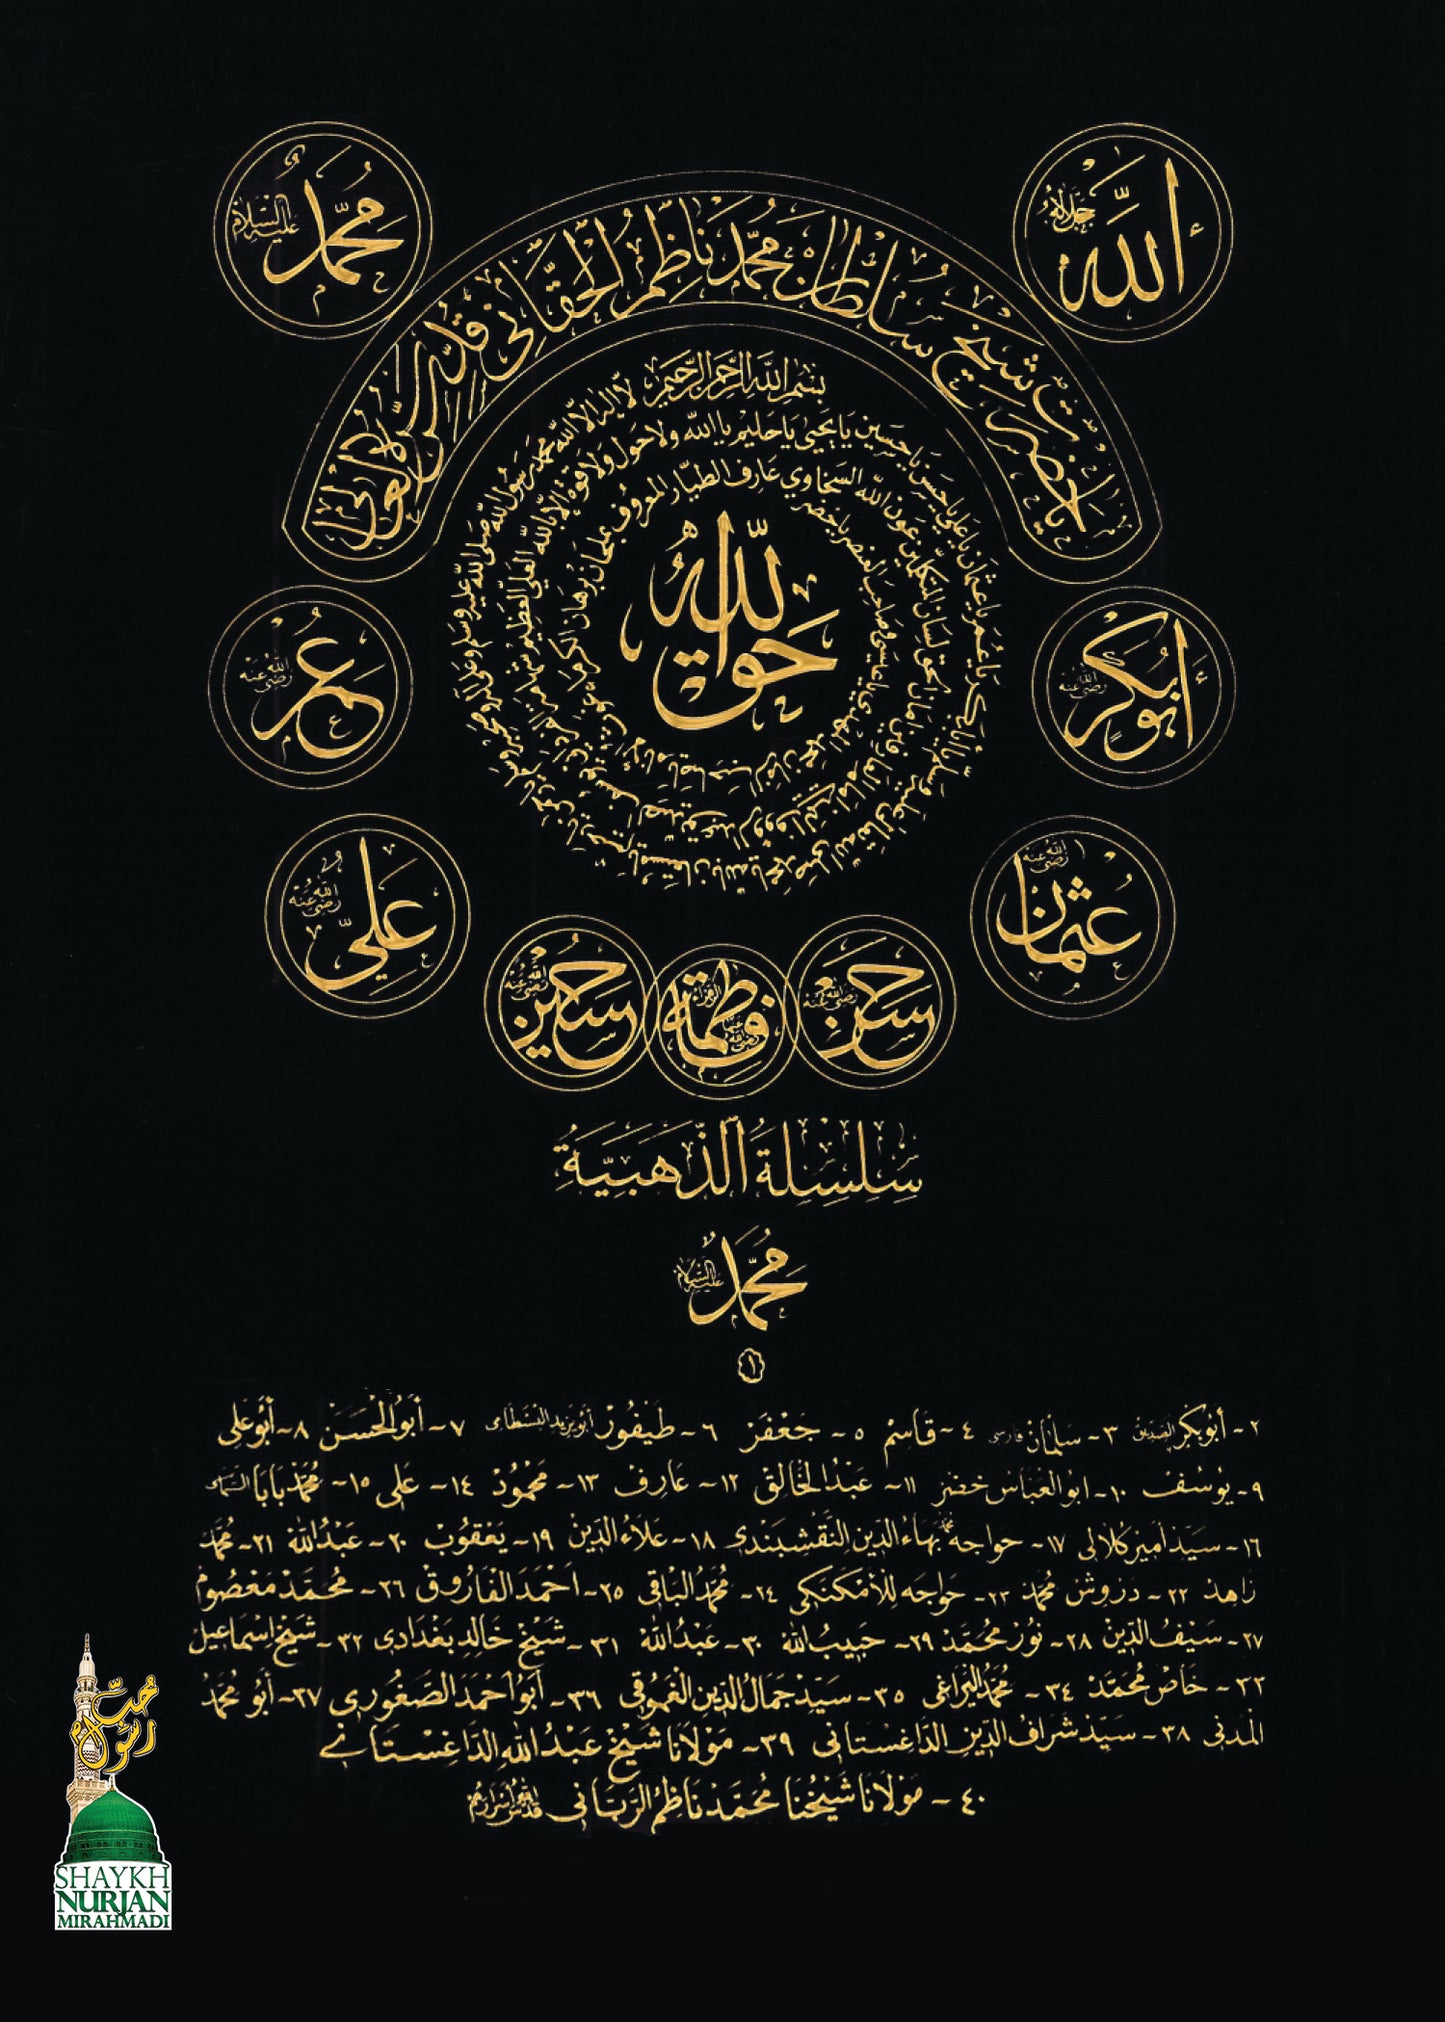 الله جل جلاله
محمد عليه السلام
يا حضرت شيخ سلطان محمد ناظم الحقاني قدس سره العالي
بسم الله الرحمن الرحيم
لا إله إلا الله محمد رسول الله صلى الله عليه وسلم
يا عمر يا عثمان يا علي يا حسن يا حسين يا يحيى يا حليم يا الله ولا حول ولا قوة إلا بالله العلي العظيم
عون الله السخاوي عارف الطيار المعروف بملحان برهان الكرماء
حق الله
أبو بكر رضي الله عنه
عمر رضي الله عنه
عثمان رضي الله عنه
علي رضي الله عنه
حسن رضي الله عنه
فاطمة الزهراء رضي الله عنها
حسين رضي الله عنه
سِلسِلَة الذَّهَبِيَّةِ
محمد عليه السلام
١
٢- أبوبكر الصديق ٣- سلمان فارسي ٤- قاسم ٥- جعفر ٦- طيفور أبويزيد البسطامي ٧- أبوالحسن ٨- أبوعلي
٩- يوسف ١٠- ابوالعباس خضر ١١- عبدالخالق ١٢- عارف ١٣- محمود ١٤- علي ١٥- محمد بابا السماسي
١٦- سيد امير كلالي ١٧- خواجه محمد بهاء الدين النقشبندي ١٨- علاء الدين ١٩- يعقوب ٢٠- عبدالله ٢١- محمد
زاهد ٢٢- درويش محمد ٢٣- خواجه للأمكنكي ٢٤- محمد الباقي ٢٥- احمد الفاروق ٢٦- محمد معصوم
٢٧- سيف الدين ٢٨- نور محمد ٢٩- حبيب الله ٣٠- عبدالله ٣١- شيخ خالد بغدادي ٣٢- شيخ اسماعيل
٣٣- خاص محمد ٣٤- محمد اليراغي ٣٥- سيد جمال الدين الغموقي ٣٦- أبو احمد الصغوري ٣٧- أبو محمد
المدني ٣٨- سيد شراف الدين الداغستاني ٣٩- مولانا شيخ عبدالله الداغستاني
٤٠- مولانا شيخنا محمد ناظم الرباني قدس الله أسرارهم
حب رسول
SHAYKH
NURJAN
MIRAHMADI